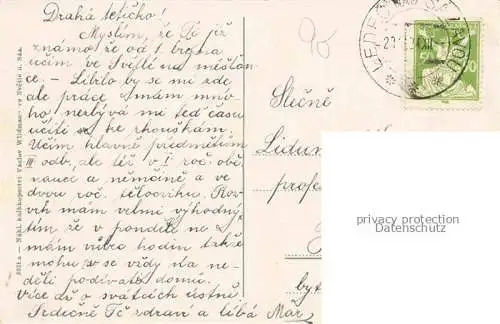 Drahá tetičko!
Myslím, že Ti již
známo, že od 1. března
učím ve Světlé na měšťan-
ce. – Líbilo by se mi zde,
ale práce mám mno-
ho, nezbývá mi teď času
učiti se ke zkouškám.
Učím hlavně předmětům
III odb., ale též v I roč. obč.
nauce a němčině a ve
dvou roč. tělocviku. Roz-
vrh mám velmi výhodný,
tím, že v pondělí ne-
mám vůbec hodin takže
mohu se vždy na ne-
děli podívati domů.
Více až o svátcích ústně.
Srdečně Tě zdraví a líbá Mař.
90
Slečně
Lidun
profe
byt
Nákl. knihkupectví Václav Wildmann ve Světlé n. Sáz.
privacy protection
Datenschutz